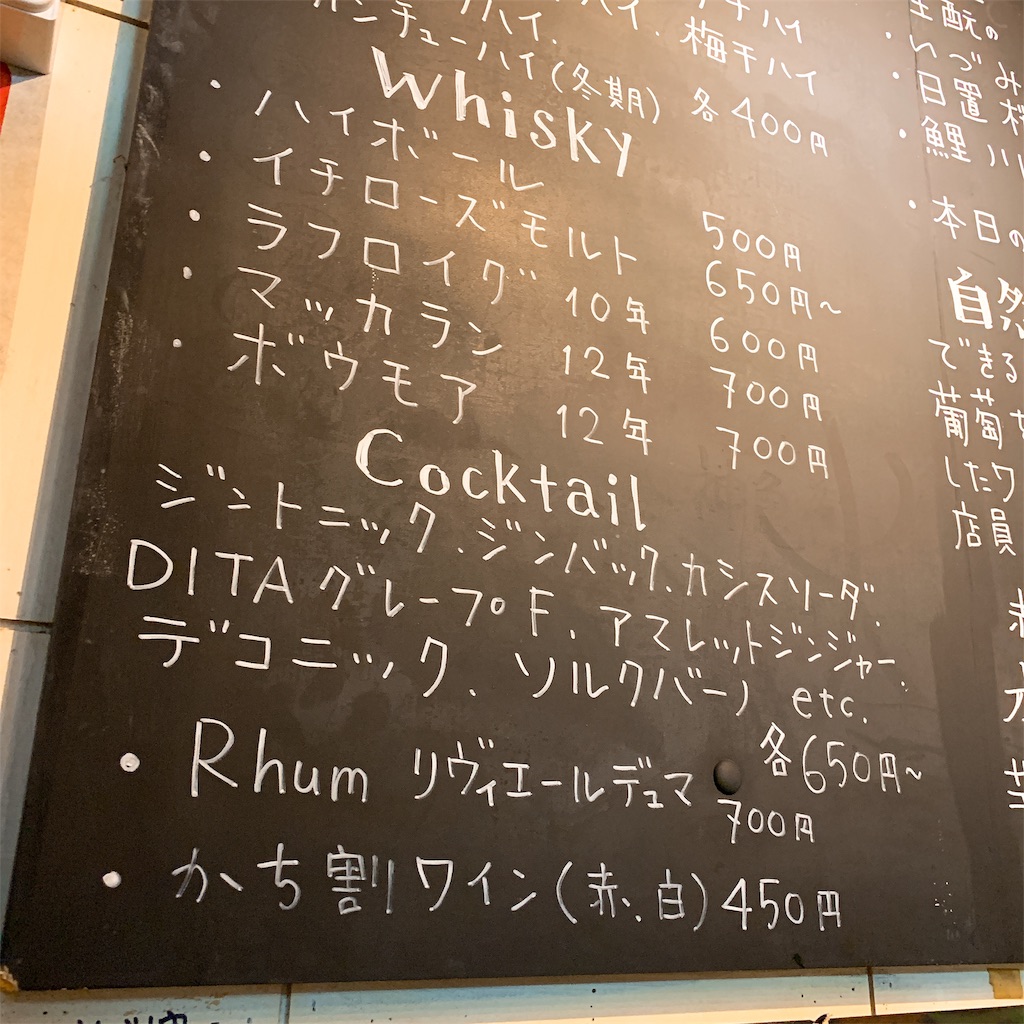 梅干ハイ
チューハイ(冬期) 各400円
Whisky
・ハイボール 500円
・イチローズモルト 650円~
・ラフロイグ 10年 600円
・マッカラン 12年 700円
・ボウモア 12年 700円
Cocktail
ジントニック、ジンバック、カシスソーダ、
DITAグレープF、アマレットジンジャー、
デコニック、ソルクバーノ etc.
各650円~
・Rhum リヴィエールデュマ 700円
・かち割ワイン(赤、白) 450円
生酛の
・いづみ
・日置桜
・鯉川
・本日の
自然
できる
葡萄
したワ
店員